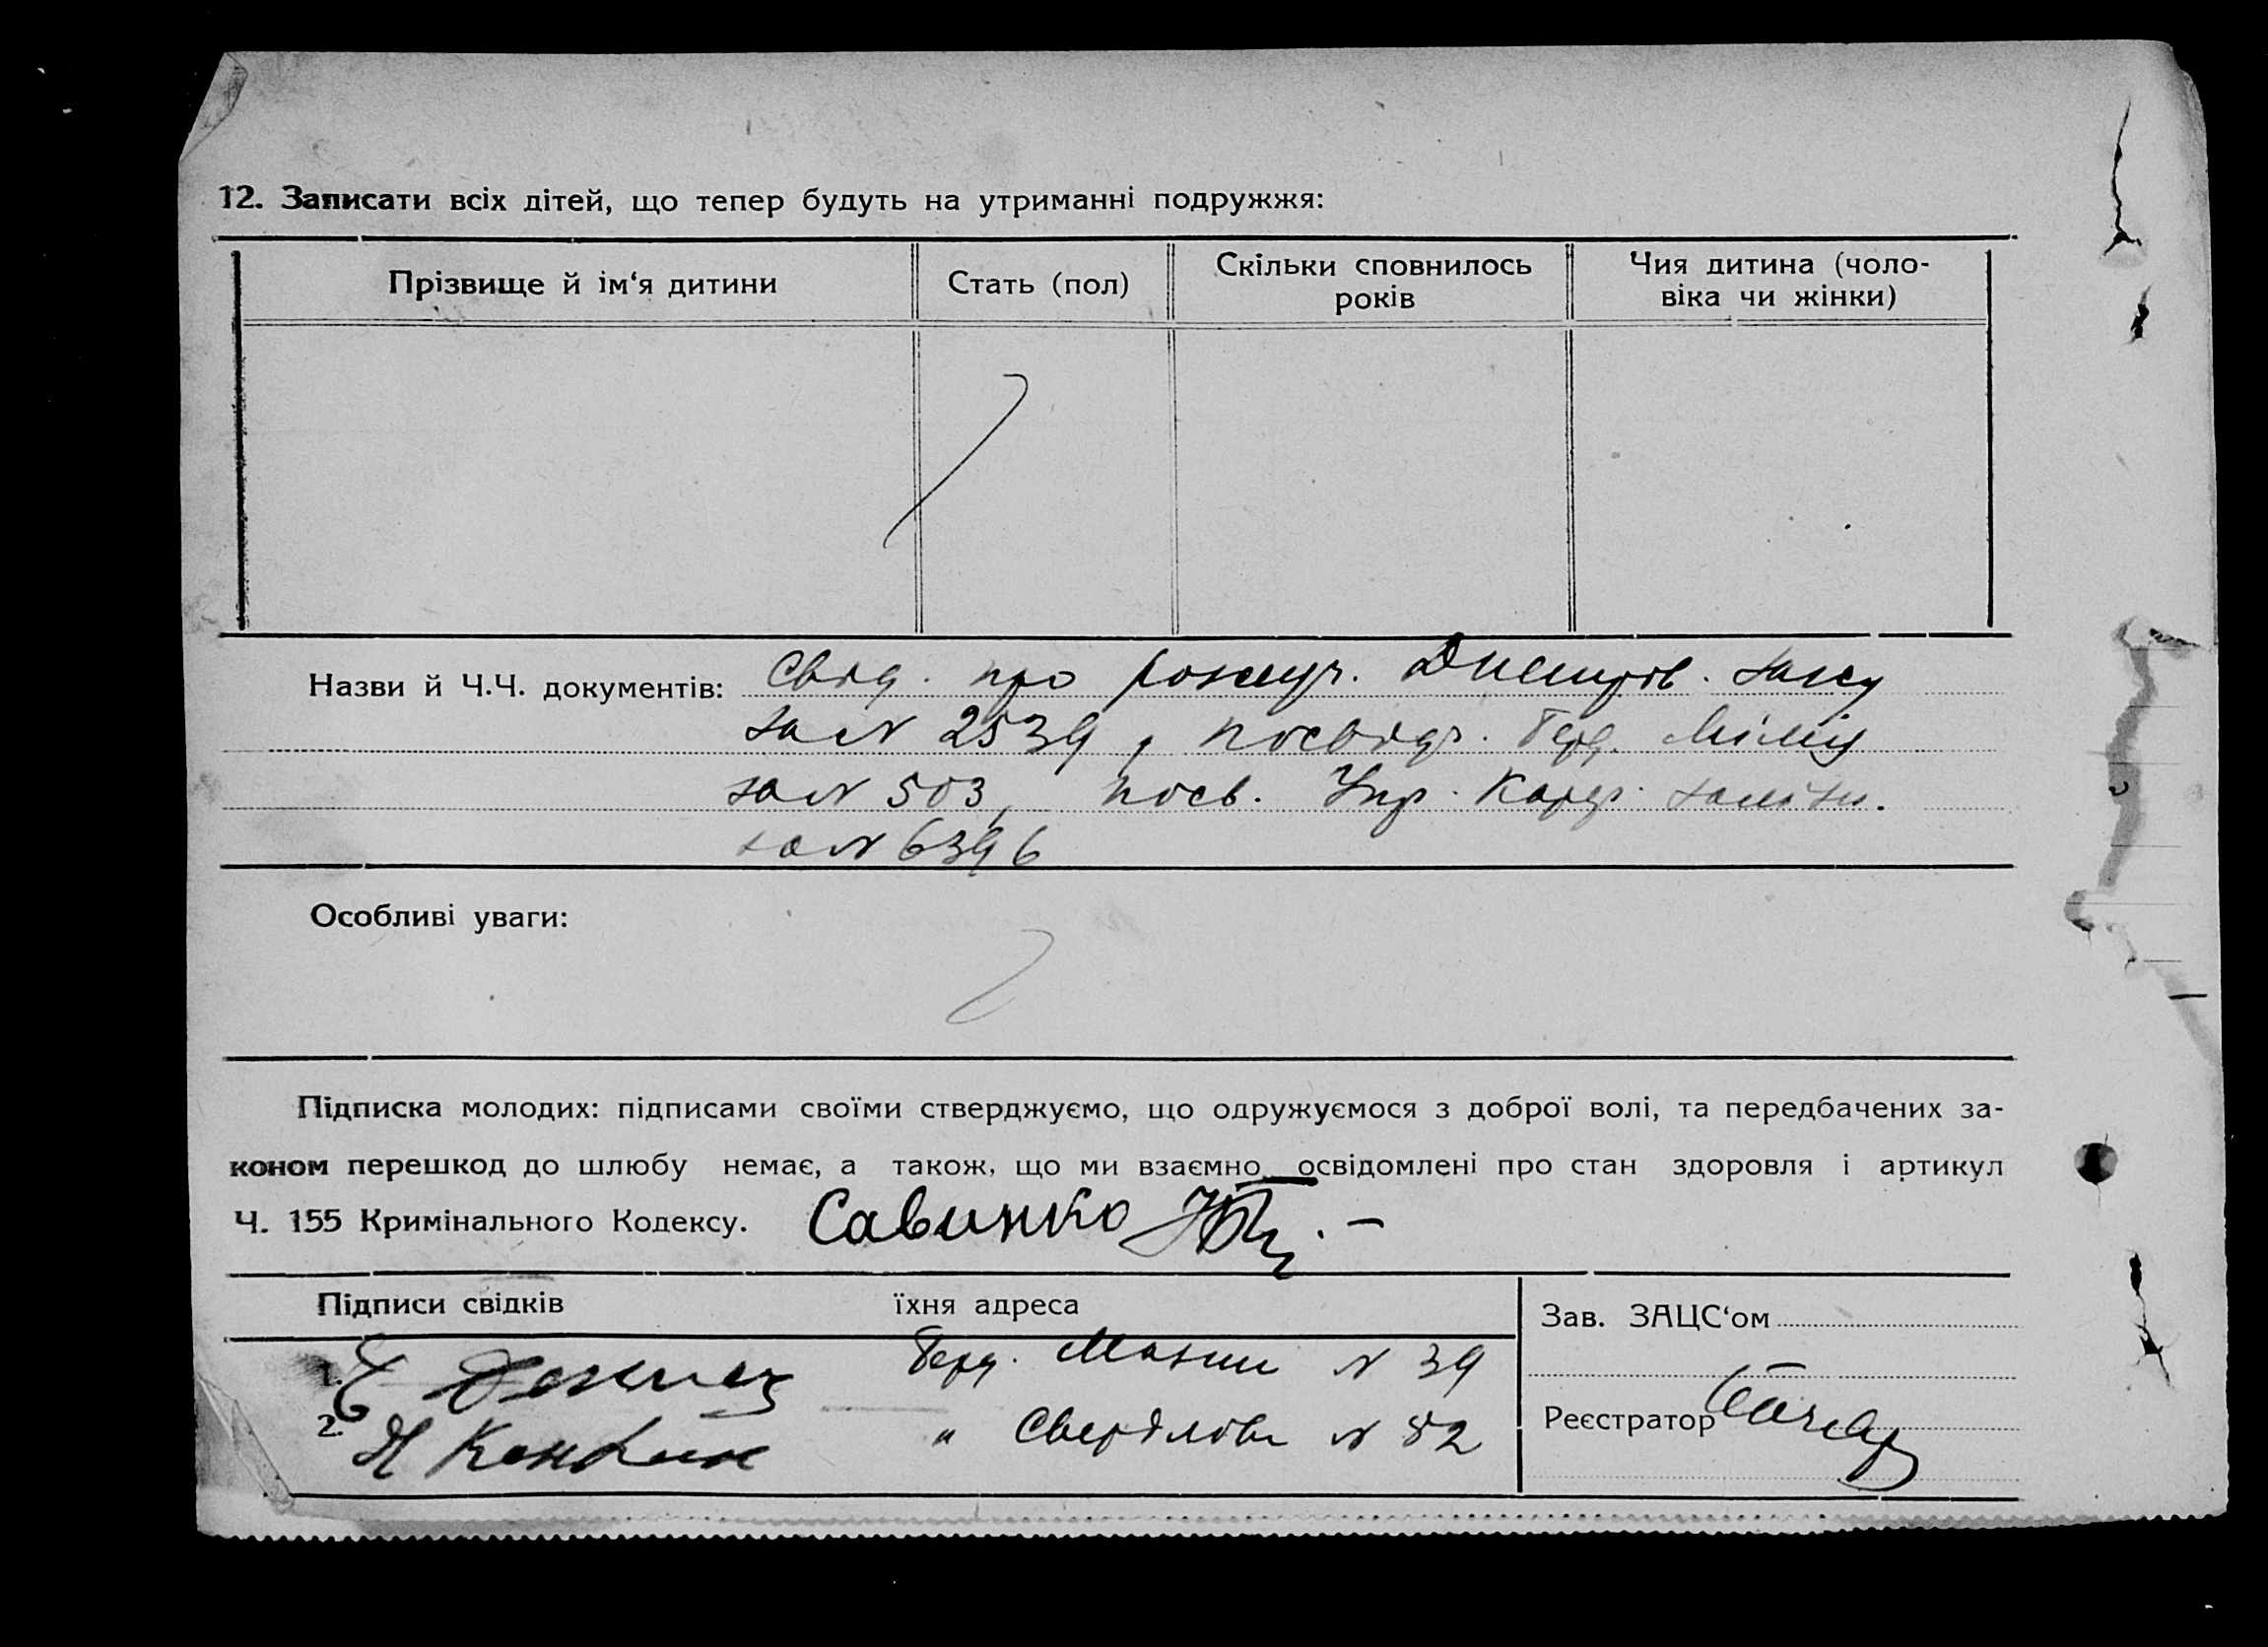 12. Записати всіх дітей, що тепер будуть на утриманні подружжя:
Прізвище й ім‘я дитини
Стать (пол)
Скільки сповнилось
років
Чия дитина (чоло-
віка чи жінки)
Назви й Ч.Ч. документів: Свід. про
за N 2539, посвідч.
за N 503, посв. Упр.
за N 6396
Особливі уваги:
Підписка молодих: підписами своїми стверджуємо, що одружуємося з доброї волі, та передбачених за-
коном перешкод до шлюбу немає, а також, що ми взаємно освідомлені про стан здоровля і артикул
Ч. 155 Кримінального Кодексу. Савинко
Підписи свідків їхня адреса
Зав. ЗАЦС‘ом
1. N 39
2. " Свердлова N 82
Реєстратор